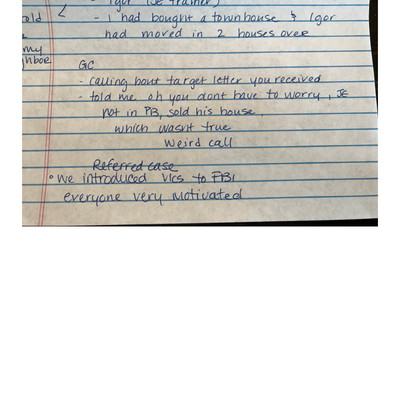 Igor (JE trainer)
old < - I had bought a townhouse & Igor
had moved in 2 houses over
my
ghbor
GC
- calling bout target letter you received
- told me oh you dont have to worry, JE
not in PB, sold his house,
which wasnt true
weird call
Referred case
• We introduced vics to FBI
everyone very motivated